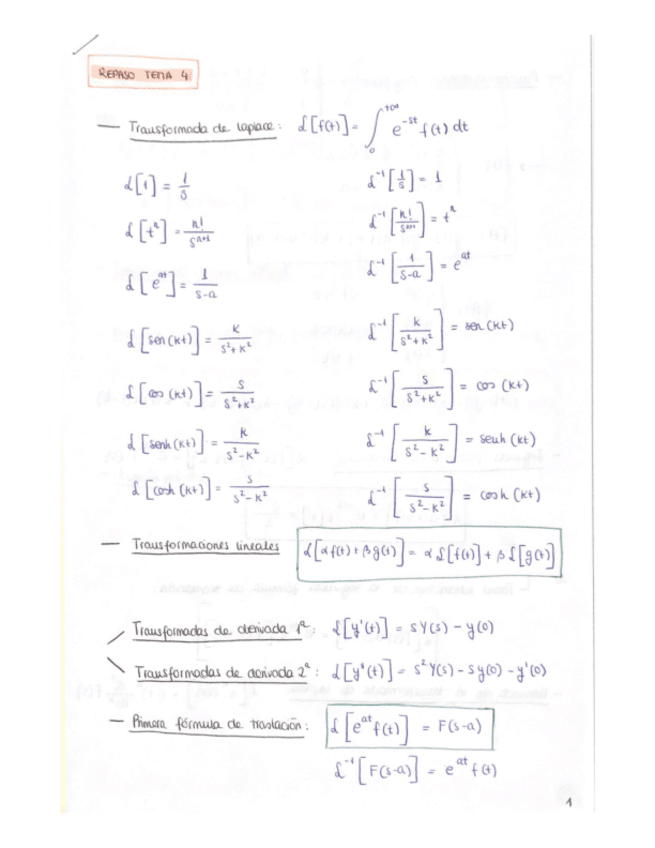 REPASO TEMA 4
— Transformada de laplace: ℒ[f(t)] = ∫₀^{+∞} e^{-st} f(t) dt
ℒ[1] = 1/s    ℒ⁻¹[1/s] = 1
ℒ[tⁿ] = n!/s^{n+1}    ℒ⁻¹[n!/s^{n+1}] = tⁿ
ℒ[e^{at}] = 1/(s-a)    ℒ⁻¹[1/(s-a)] = e^{at}
ℒ[sen(kt)] = k/(s²+k²)    ℒ⁻¹[k/(s²+k²)] = sen(kt)
ℒ[cos(kt)] = s/(s²+k²)    ℒ⁻¹[s/(s²+k²)] = cos(kt)
ℒ[senh(kt)] = k/(s²-k²)    ℒ⁻¹[k/(s²-k²)] = senh(kt)
ℒ[cosh(kt)] = s/(s²-k²)    ℒ⁻¹[s/(s²-k²)] = cosh(kt)
— Transformaciones lineales    ℒ[αf(t)+βg(t)] = αℒ[f(t)]+βℒ[g(t)]
Transformadas de derivada 1ª: ℒ[y'(t)] = sY(s) - y(0)
Transformadas de derivada 2ª: ℒ[y''(t)] = s²Y(s) - sy(0) - y'(0)
— Primera fórmula de traslación: ℒ[e^{at}f(t)] = F(s-a)
ℒ⁻¹[F(s-a)] = e^{at}f(t)
1